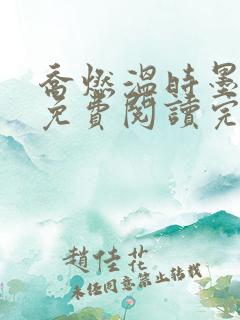 喬燃溫時墨
免費閱讀完
趙佳花
未任同意禁止转载